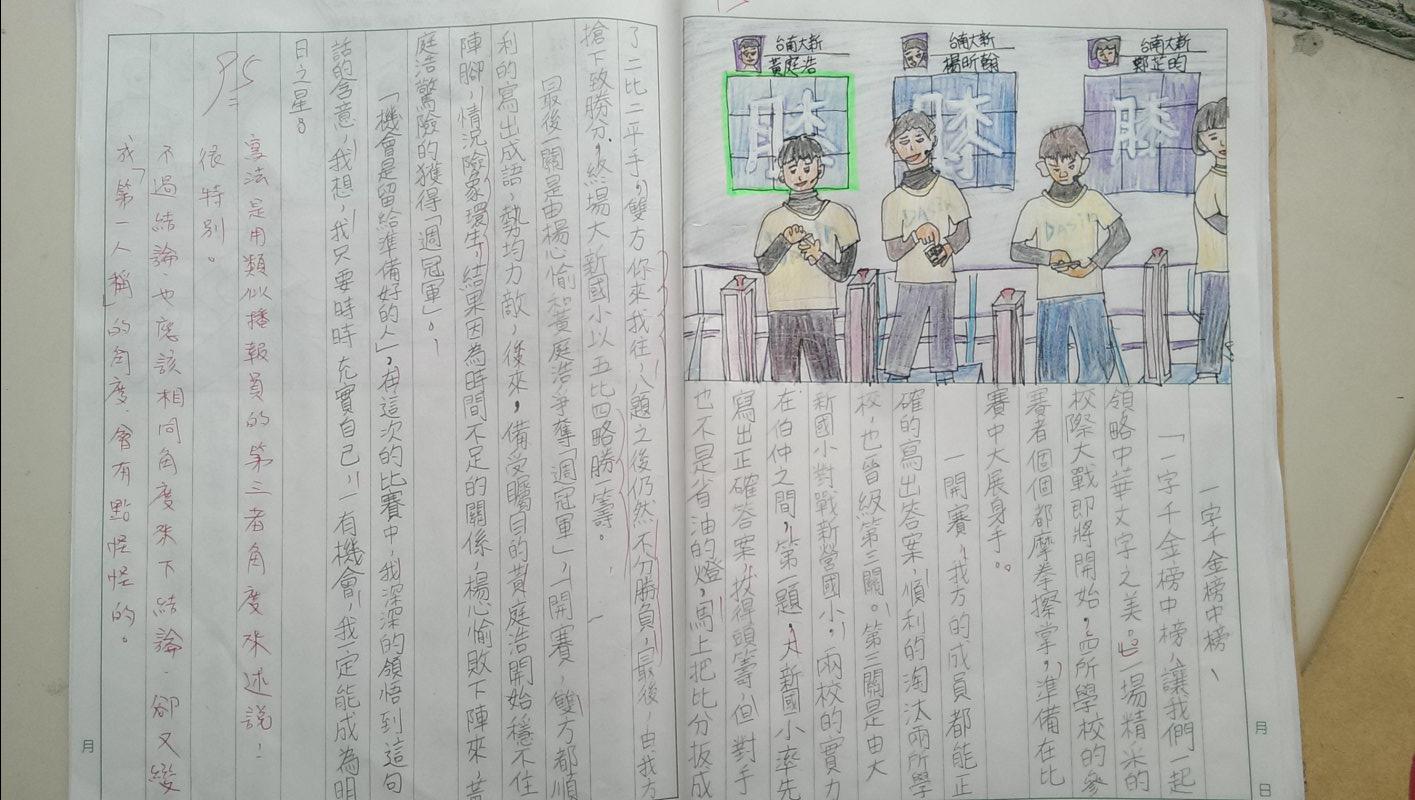 台南大新
黃庭浩
台南大新
楊昕翰
台南大新
鄭芷昀
膝
膝
膝
Dasin
Dasin
一字千金榜中榜
「一字千金榜中榜，讓我們一起
領略中華文字之美。」一場精采的
校際大戰即將開始，四所學校的參
賽者個個都摩拳擦掌，準備在比
賽中大展身手。
一開賽，我方的成員都能正
確的寫出答案，順利的淘汰兩所學
校，也晉級第三關。第三關是由大
新國小對戰新營國小，兩校的實力
在伯仲之間，第一題，大新國小率先
寫出正確答案，拔得頭籌，但對手
也不是省油的燈，馬上把比分扳成
了二比二平手，雙方你來我往，八題之後仍然不分勝負，最後，由我方
搶下致勝分，終場大新國小以五比四略勝一籌。
最後一關是由楊心愉和黃庭浩爭奪「週冠軍」，一開賽，雙方都順
利的寫出成語，勢均力敵，後來，備受矚目的黃庭浩開始穩不住
陣腳，情況險象環生，結果因為時間不足的關係，楊心愉敗下陣來，黃
庭浩驚險的獲得「週冠軍」。
「機會是留給準備好的人」，在這次的比賽中，我深深的領悟到這句
話的含意，我想，我只要時時充實自己，一有機會，我一定能成為明
日之星。
95
寫法是用類似播報員的第三者角度來述說！
很特別。
不過結論也應該相同角度來下結論，卻又變
成「第一人稱」的角度，會有點怪怪的。
月
日
月